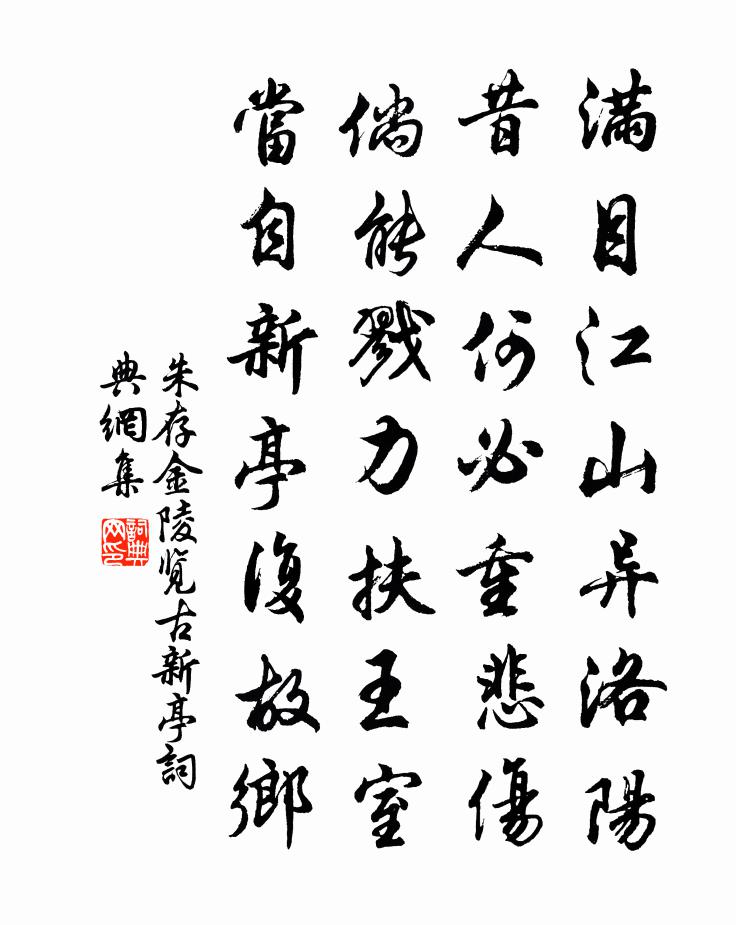 滿目江山异洛陽
昔人何必重悲傷
倘能戮力扶王室
當自新亭復故鄉
朱存金陵覽古新亭詞
典網集
詞典
网印